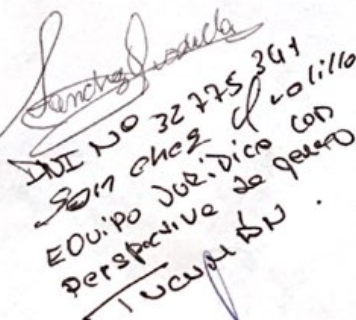 Sanchez
DNI Nº 32775341
Sanchez
EQUIPO JURIDICO CON
perspectiva de genero
TUCUMÁN.